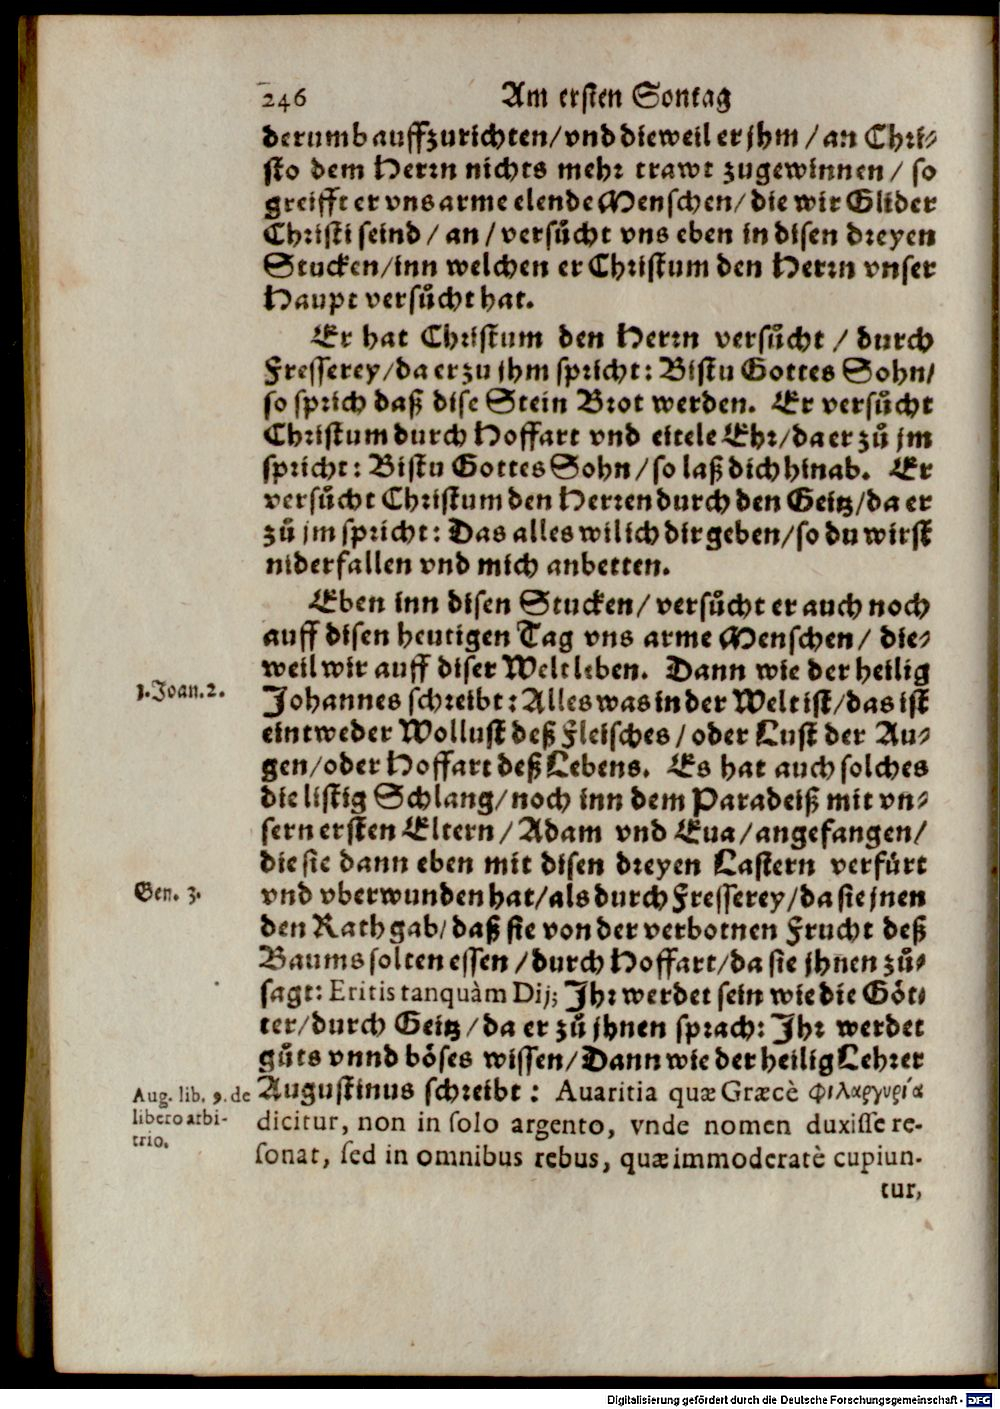 246 Am ersten Sontag
derumb auffzurichten/vnd dieweil er jhm/an Chri-
sto dem Herrn nichts mehr trawt zugewinnen/ so
greifft er vns arme elende Menschen/ die wir Glider
Christi seind/ an/ versůcht vns eben in disen dreyen
Stucken/inn welchen er Christum den Herrn vnser
Haupt versůcht hat.
Er hat Christum den Herrn versůcht / durch
Fresserey/da er zu jhm spricht: Bistu Gottes Sohn/
so sprich daß dise Stein Brot werden. Er versůcht
Christum durch Hoffart vnd eitele Ehr/da er zů jm
spricht: Bistu Gottes Sohn/so laß dich hinab. Er
versůcht Christum den Herren durch den Geitz/da er
zů jm spricht: Das alles wil ich dir geben/so du wirst
niderfallen vnd mich anbetten.
Eben inn disen Stucken/ versůcht er auch noch
auff disen heutigen Tag vns arme Menschen/ die-
weil wir auff diser Welt leben. Dann wie der heilig
1. Joan. 2.
Johannes schreibt: Alles was in der Welt ist/das ist
eintweder Wollust deß Fleisches/ oder Lust der Au-
gen/oder Hoffart deß Lebens. Es hat auch solches
die listig Schlang/noch inn dem Paradeiß mit vn-
sern ersten Eltern/ Adam vnd Eua/angefangen/
die sie dann eben mit disen dreyen Lastern verfürt
Gen. 3.
vnd vberwunden hat/als durch Fresserey/da sie jnen
den Rath gab/daß sie von der verbotnen Frucht deß
Baums solten essen/durch Hoffart/da sie jhnen zů-
sagt: Eritis tanquàm Dij; Jhr werdet sein wie die Göt-
ter/durch Geitz/da er zů jhnen sprach: Jhr werdet
gůts vnnd böses wissen/Dann wie der heilig Lehrer
Aug. lib. 9. de
libero arbi-
trio.
Augustinus schreibt: Avaritia quæ Græcè φιλαργυρία
dicitur, non in solo argento, vnde nomen duxisse re-
sonat, sed in omnibus rebus, quæ immoderatè cupiun-
tur,
Digitalisierung gefördert durch die Deutsche Forschungsgemeinschaft - DFG